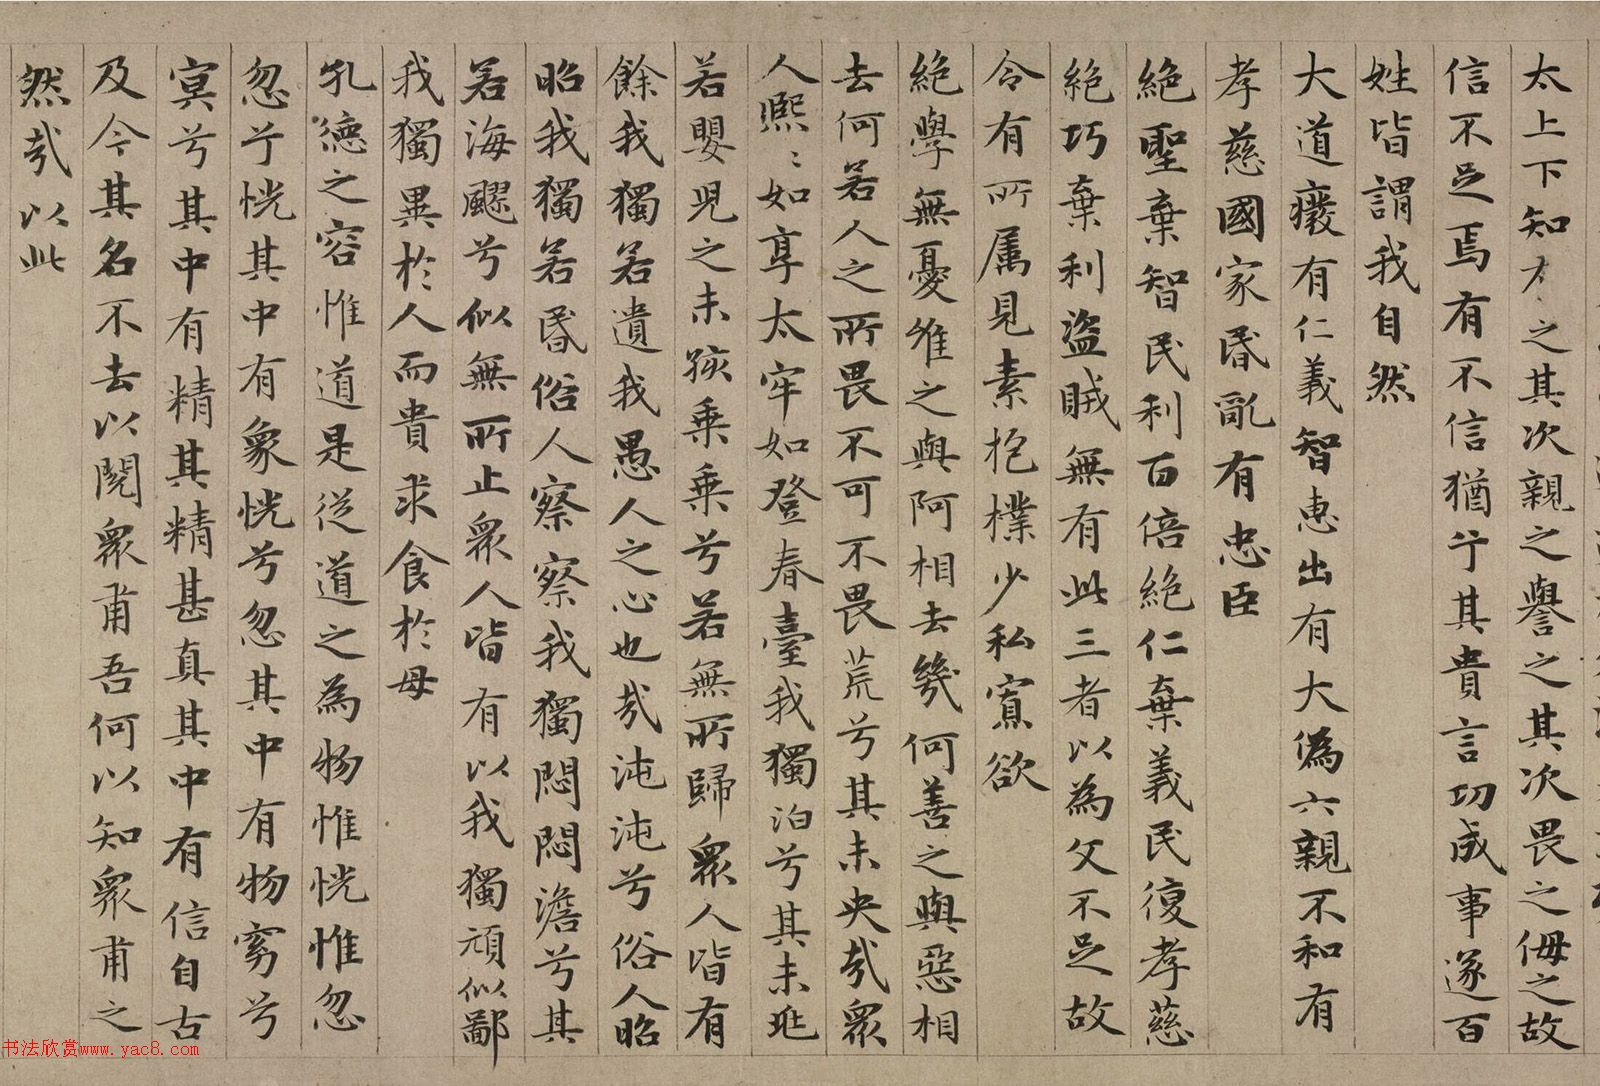 太上下知有之其次親之譽之其次畏之侮之故
信不足焉有不信猶兮其貴言功成事遂百
姓皆謂我自然
大道癈有仁義智惠出有大偽六親不和有
孝慈國家昏亂有忠臣
絕聖棄智民利百倍絕仁棄義民復孝慈
絕巧棄利盜賊無有此三者以為文不足故
令有所属見素抱樸少私寡欲
絕學無憂唯之與阿相去幾何善之與惡相
去何若人之所畏不可不畏荒兮其未央哉眾
人熈〻如享太牢如登春臺我獨泊兮其未兆
若嬰兒之未孩乘乘兮若無所歸眾人皆有
餘我獨若遺我愚人之心也哉沌沌兮俗人昭
昭我獨若昏俗人察察我獨悶悶澹兮其
若海飂兮似無所止眾人皆有以我獨頑似鄙
我獨異於人而貴求食於母
孔德之容惟道是從道之為物惟恍惟忽
忽兮恍其中有象恍兮忽其中有物窈兮
冥兮其中有精其精甚真其中有信自古
及今其名不去以閱眾甫吾何以知眾甫之
然哉以此
书法欣赏www.yac8.com